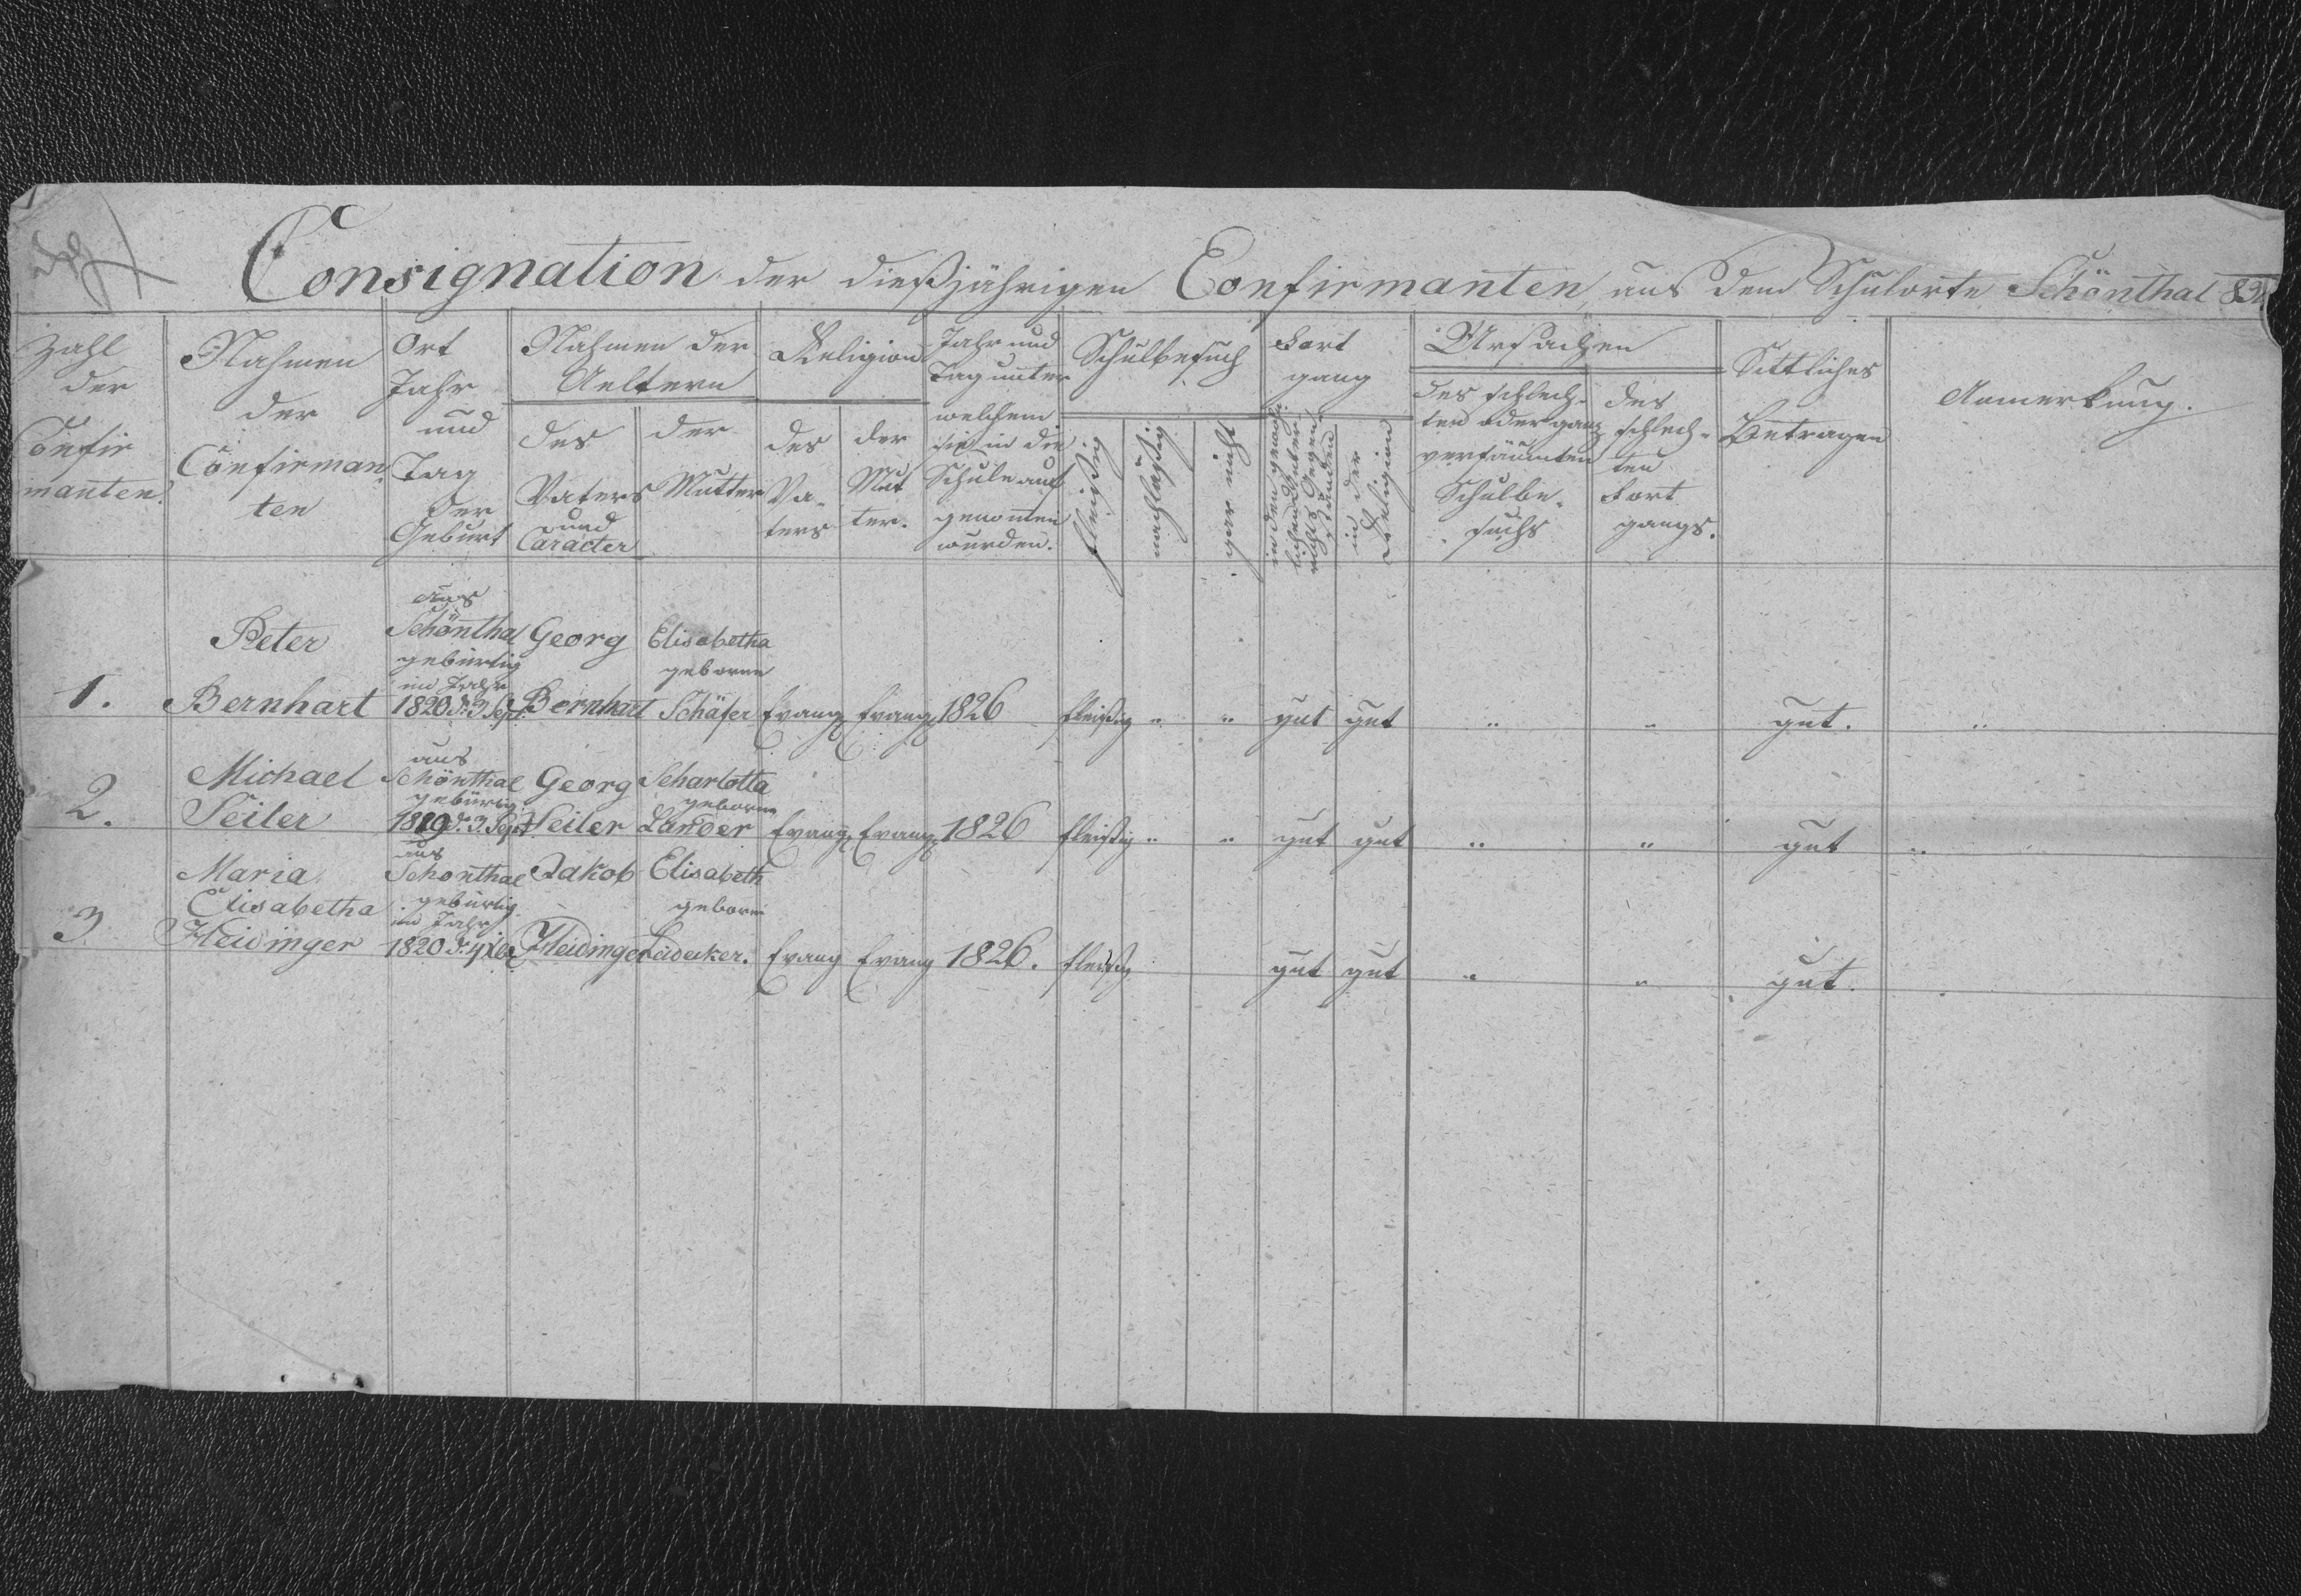 Consignation der dießjährigen Confirmanten, aus dem Schulorte Schönthal
Zahl
der
Confir
manten.
Nahmen
der
Confirman
ten
Ort
Jahr
und
Tag
der
Geburt
Nahmen der
Aeltern
des
Vaters
und
Caracter
der
Mutter
Religion
des
Va-
ters
der
Mut
ter.
Jahr und
Tag unter
welchem
sie in die
Schule auf
genommen
wurden.
Schulbesuch
fleißig
nachläßig
gar nicht
Fort
gang
in den gewöhn-
lichen Unter-
richts Gegen-
ständen
in der
Religion
Ursachen
des schlech-
ten oder ganz
versäumten
Schulbe-
suchs
des
schlech-
ten
Fort
gangs.
Sittliches
Betragen
Anmerkung.
1.
Peter
Bernhart
aus
Schönthal
gebürtig
im Jahr
1820 d. 3 Sept.
Georg
Bernhart
Elisabetha
geborne
Schäfer
Evang Evang 1826 fleißig " " gut gut " " gut. "
2.
Michael
Seiler
aus
Schönthal
gebürtig
1819 d. 3. Sept
Georg
Seiler
Scharlotta
geborne
Lander
Evang Evang 1826 fleißig " " gut gut " " gut "
3
Maria
Elisabetha
Heidinger
aus
Schonthal
gebürtig
im Jahr
1820 d.
Jakob
Heidinger
Elisabeth
geborne
Leidecker.
Evang Evang 1826. fleißig gut gut " " gut.